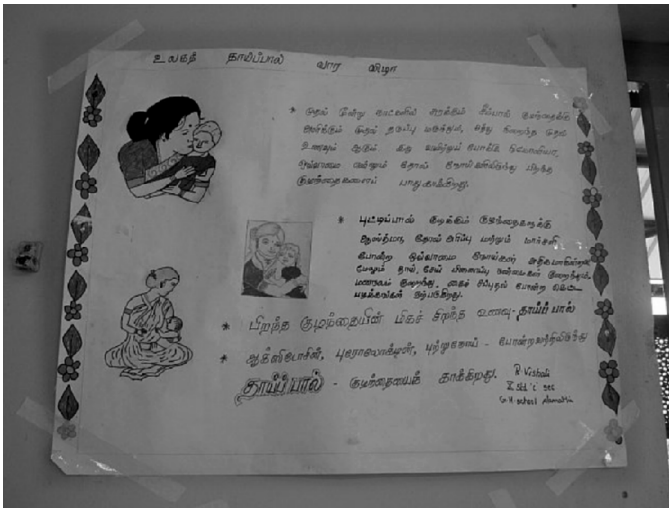 உலகத் தாய்ப்பால் வார விழா
* முதல் மூன்று நாட்களில் சுரக்கும் சீம்பால் குழந்தைக்கு
அளிக்கும் முதல் தடுப்பு மருந்தும், சத்து நிறைந்த முதல்
உணவும் ஆகும்
ஒவ்வாமை மற்றும் தோல் நோய்களிலிருந்து பிறந்த
குழந்தைகளைப் பாதுகாக்கிறது.
* புட்டிப்பால் குடிக்கும் குழந்தைகளுக்கு
ஆஸ்த்மா, தோல் அரிப்பு மற்றும் மார்சளி
போன்ற ஒவ்வாமை நோய்கள் அதிகமாகின்றன.
மேலும் தாய், சேய் பிணைப்பு
போன்ற கெட்ட
பழக்கங்கள் ஏற்படுகிறது.
* பிறந்த குழந்தையின் மிகச் சிறந்த உணவு - தாய்ப் பால்
* புற்றுநோய் - போன்றவற்றிலிருந்து
தாய்ப்பால் - குழந்தையைக் காக்கிறது.
R. Vishali
X Std 'C' sec
G.H. school